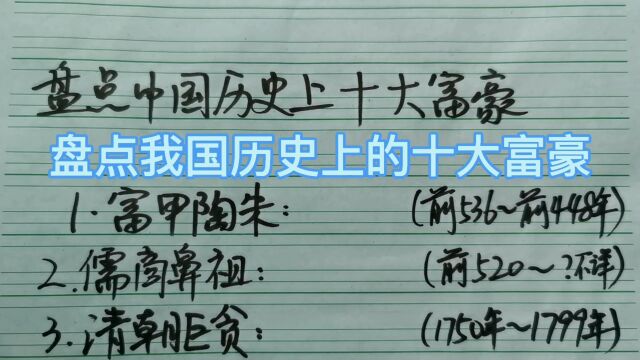 盘点中国历史上十大富豪
盘点我国历史上的十大富豪
1.富甲陶朱: (前536~前448年)
2.儒商鼻祖: (前520~?不详)
3.清朝巨贪: (1750年~1799年)